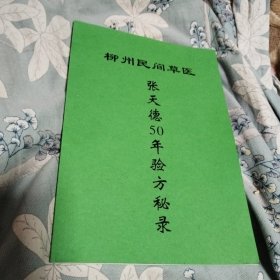 柳州民间草医
张天德50年验方秘录